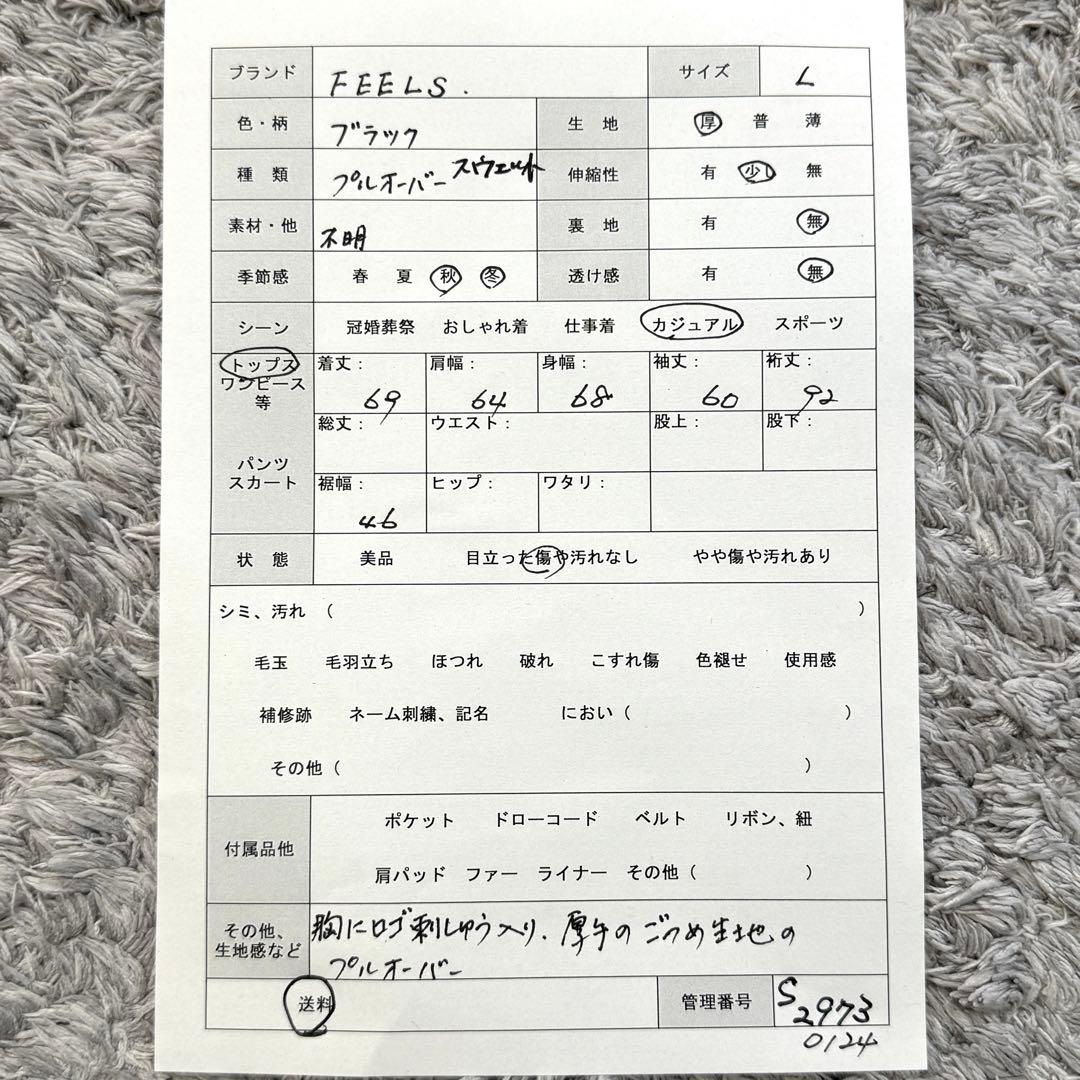 ブランド FEELS. サイズ L
色・柄 ブラック 生 地 厚 普 薄
種 類 プルオーバー スウェット 伸縮性 有 少し 無
素材・他 不明 裏 地 有 無
季節感 春 夏 秋 冬 透け感 有 無
シーン 冠婚葬祭 おしゃれ着 仕事着 カジュアル スポーツ
トップス
ワンピース
等
着丈: 肩幅: 身幅: 袖丈: 裄丈:
69 64 68 60 92
総丈: ウエスト: 股上: 股下:
パンツ
スカート
裾幅: ヒップ: ワタリ:
46
状 態 美品 目立った傷や汚れなし やや傷や汚れあり
シミ、汚れ ( )
毛玉 毛羽立ち ほつれ 破れ こすれ傷 色褪せ 使用感
補修跡 ネーム刺繍、記名 におい ( )
その他 ( )
付属品他
ポケット ドローコード ベルト リボン、紐
肩パッド ファー ライナー その他 ( )
その他、
生地感など
胸にロゴ刺しゅう入り、厚手のごつめ生地の
プルオーバー
送料 管理番号 S
2973
0124